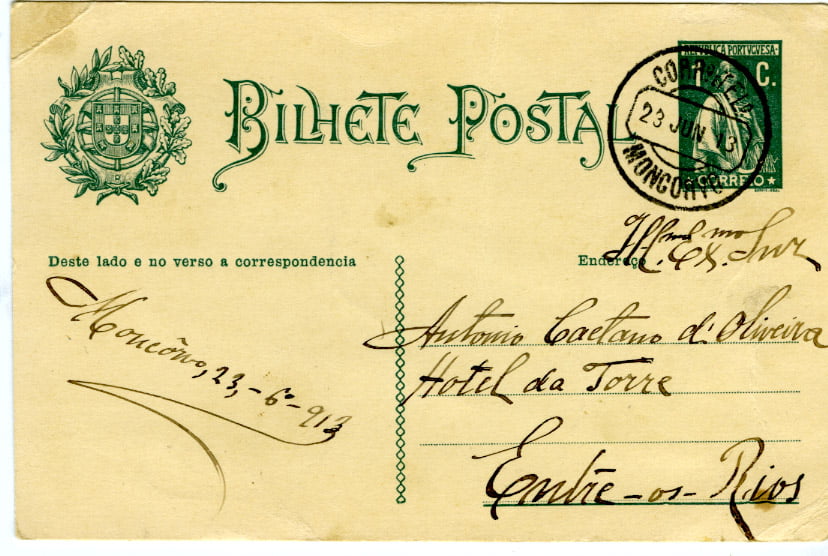 BILHETE POSTAL
REPUBLICA PORTUGUESA
1 C.
CORREIO
23 JUN 13
MONCORVO
Deste lado e no verso a correspondencia
Endereço
Ill.mo Ex.mo Snr
Antonio Caetano d'Oliveira
Hotel da Torre
Entre-os-Rios
Moncôrvo, 23,-6º-913